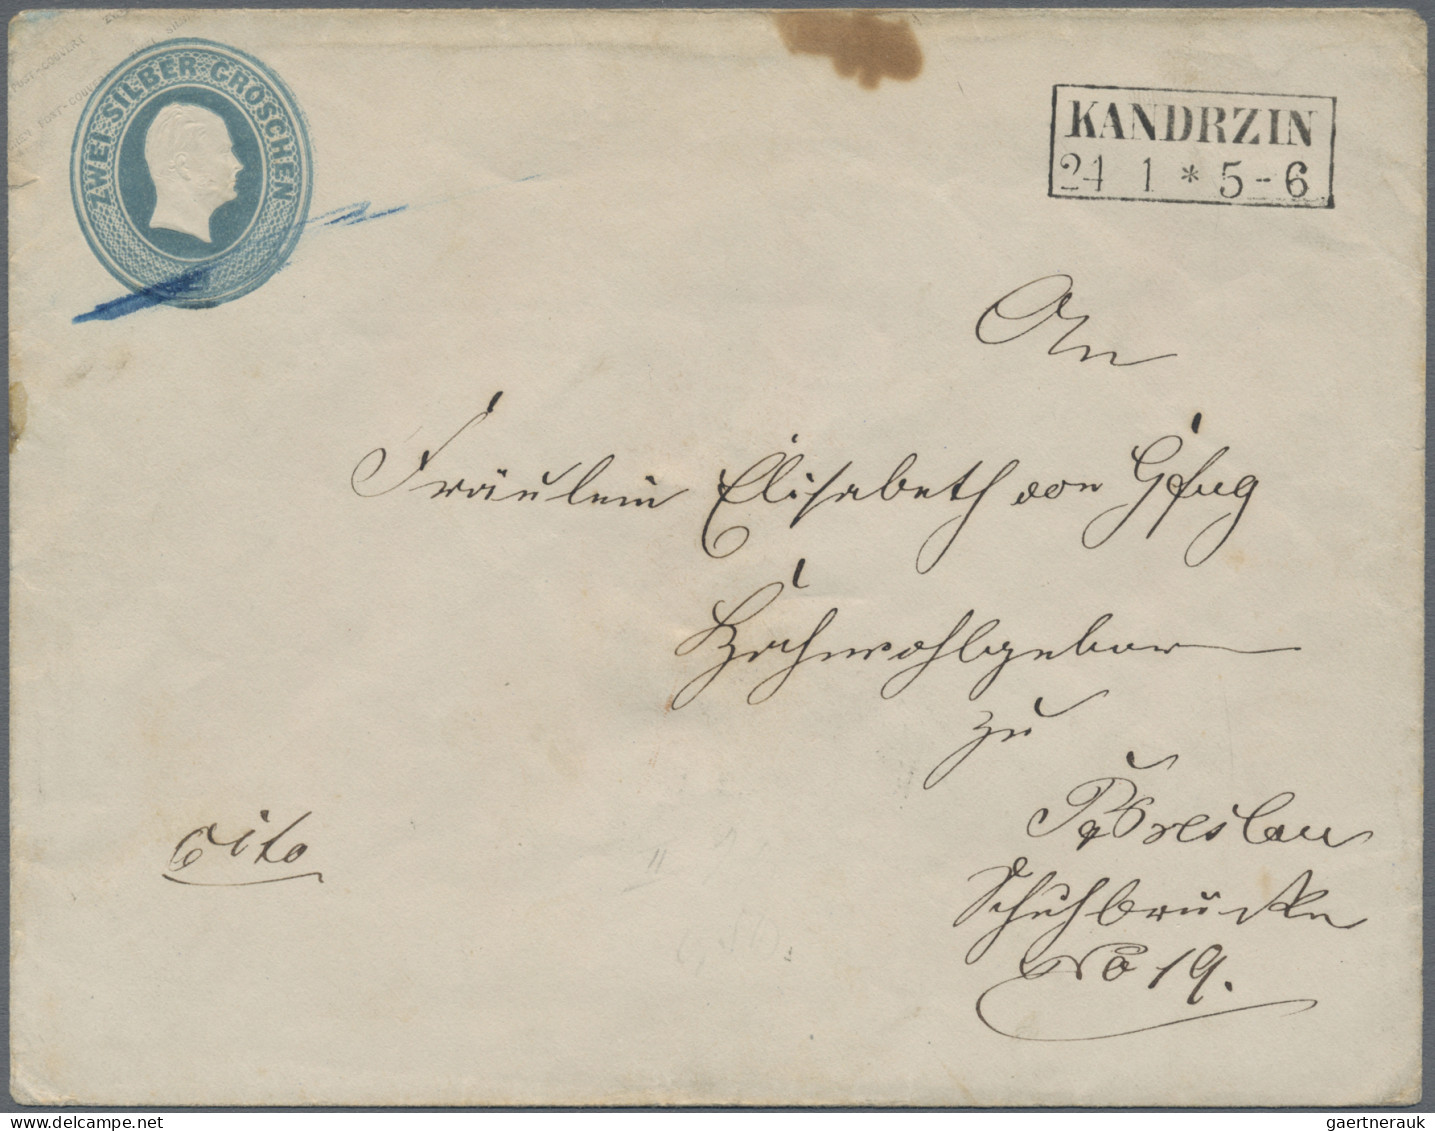 ZWEI SILBER GROSCHEN
KANDRZIN
24 1 * 5-6
An
Fräulein Elisabeth von
Hochwohlgeboren
zu
Breslau
Schuhbrücke
No 19.
cito
gaertnerauk